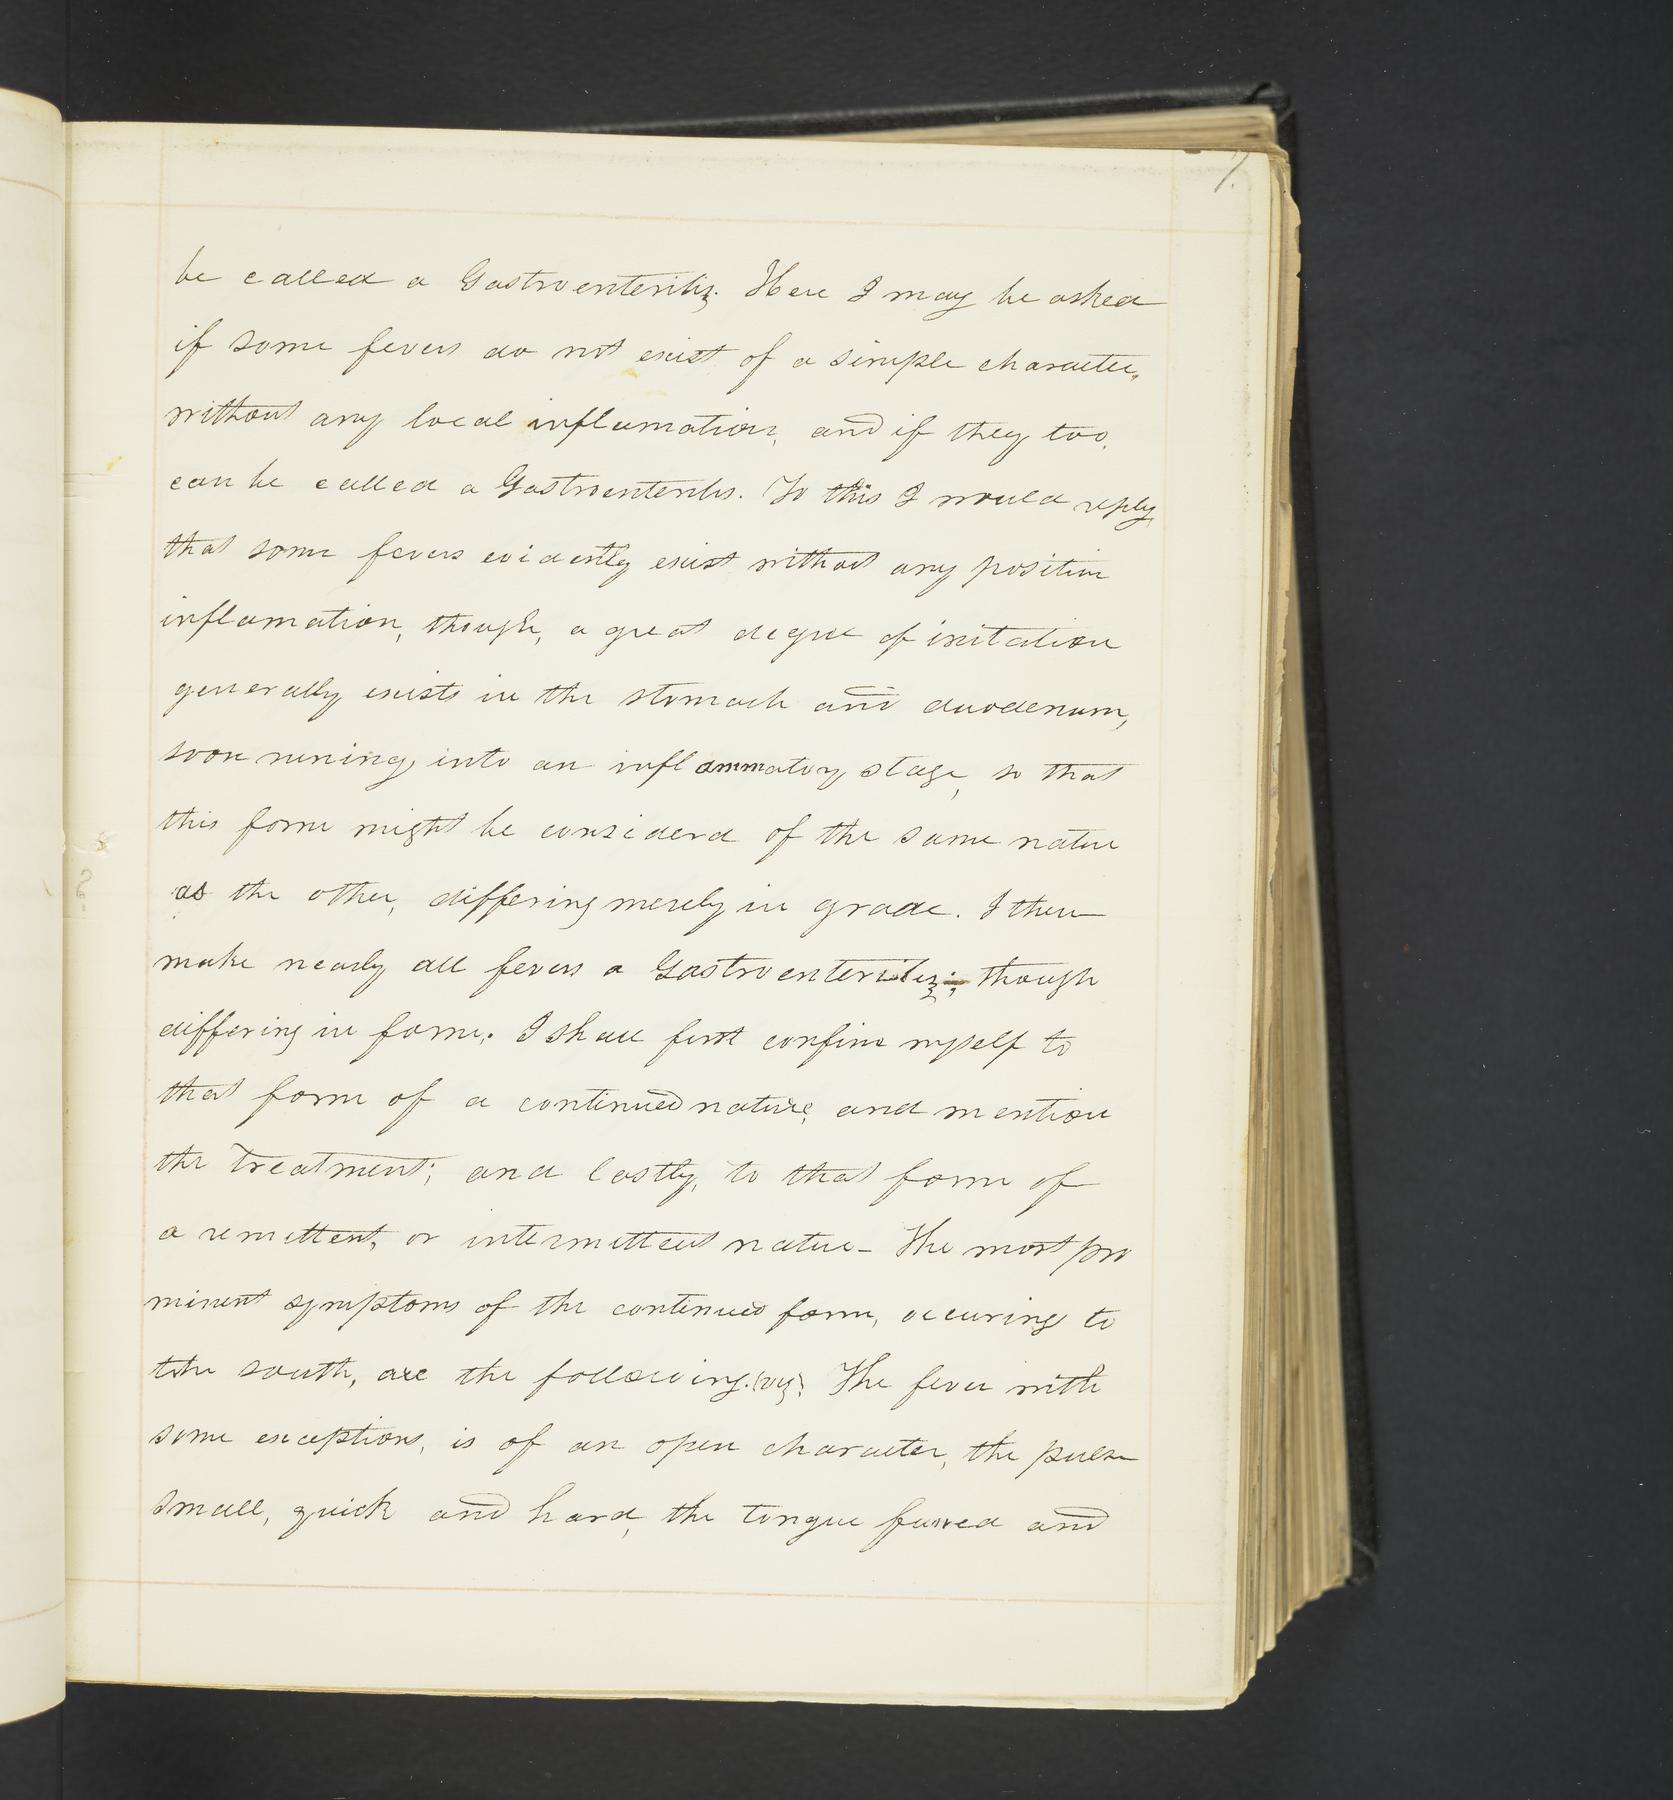 7.
be called a Gastroenteritis. Here I may be asked
if some fevers do not exist of a simple character,
without any local inflamation, and if they too,
can be called a Gastroenteritis. To this I would reply,
that some fevers evidently exist without any positive
inflamation, though, a great degree of irritation
generally exists in the stomach and duodenum,
soon runing into an inflammatory stage, so that
this form might be considerd of the same nature
as the other, differing merely in grade. I then
make nearly all fevers a Gastroenteritis; though
differing in form. I shall first confine myself to
that form of a continued nature, and mention
the treatment; and lastly, to that form of
a remittent, or intermittent nature - The most pro
minent symptoms of the continued form, occuring to
the south, are the following. (viz) The fever with
some exceptions, is of an open character, the pulse
small, quick and hard, the tongue furred and